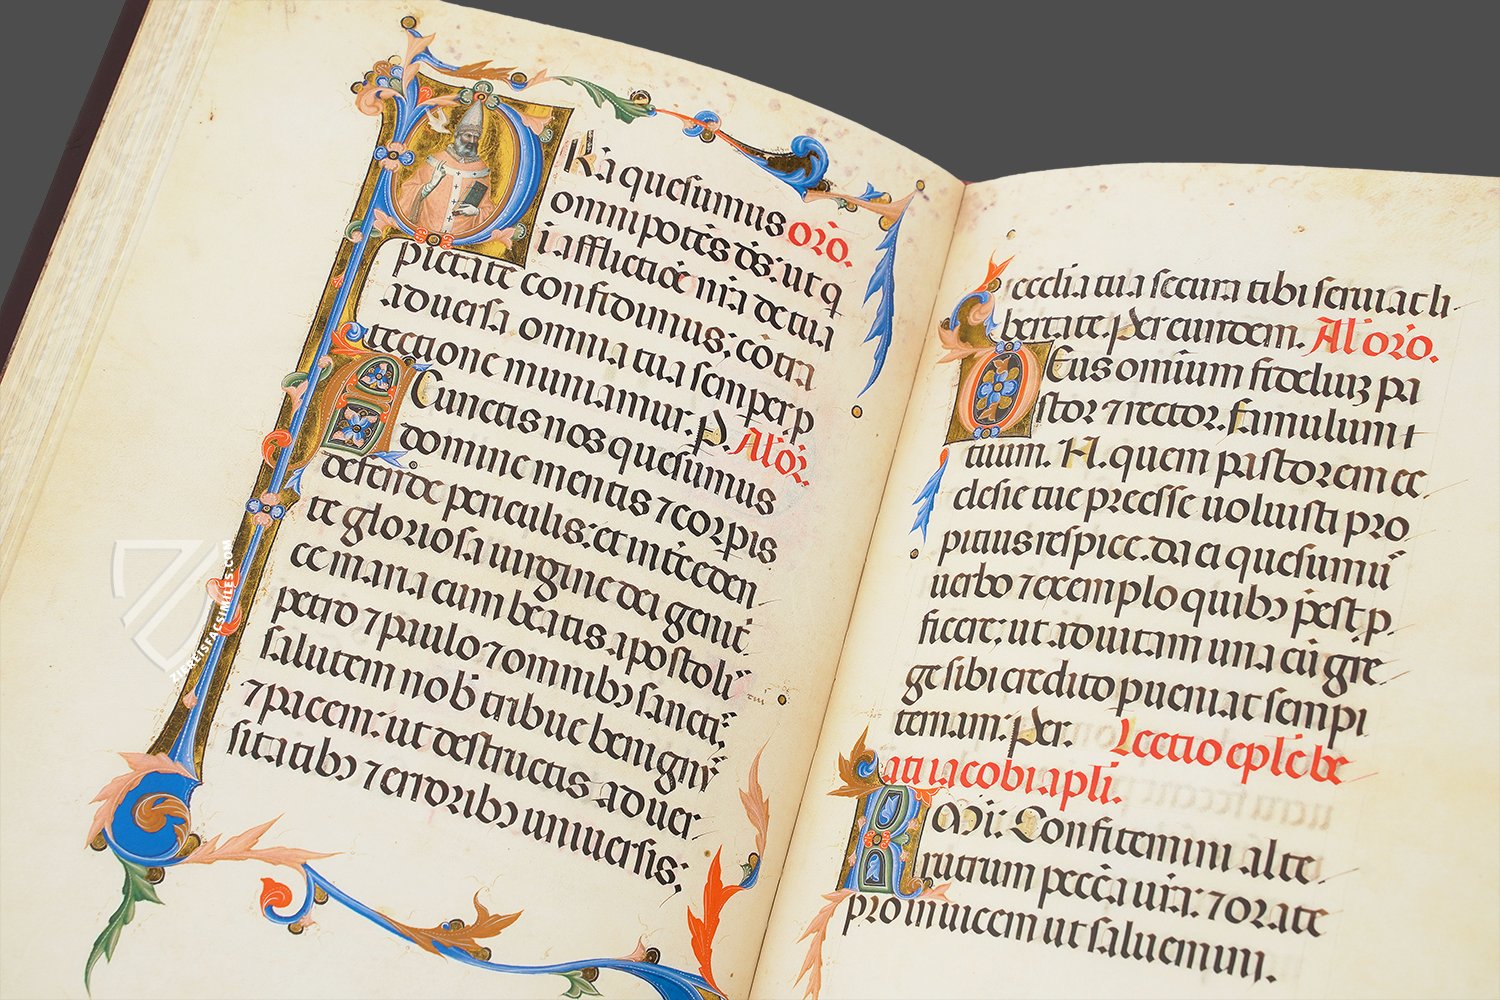 Ra quesumus oro.
omnipotēs ds: ut q
i afflictiōe nr̄a de tua
pietate confidimus: cōtra
aduersa omnia tua semper p
tectione muniamur. P. Al' or̄.
A Cunctis nos quesumus
domine mentis ⁊ corpis
defende periculis: et intēceden
te gloriosa uirgine dei genit
ce maria cum beatis apostoli
petro ⁊ paulo ⁊ omnibꝫ sancti
salutem nob̄ tribue benigny
⁊ pacem: ut destructis aduer
sitatibꝫ ⁊ erroribꝫ uniuersis:
ecclia tua secura tibi seruiat li
bertate. Per eundem. Al' oro.
DEus omium fideliuꝫ pa
stor ⁊ rector. famulum t
uum. N. quem pastorem ec
clesie tue preesse uoluisti pro
pitius respice. da ei quesumuˢ
uerbo ⁊ exemplo quibꝫ p̄est p
ficere: ut ad uitam una cū gre
ge sibi credito pueniat sempi
ternam: Per. Lectio eplē be
ati iacobi apli.
Mi: Confitemini alte
rutrum pccā ura: ⁊ orate
pro inuicem ut saluemini.
ZIEREISFACSIMILES.COM